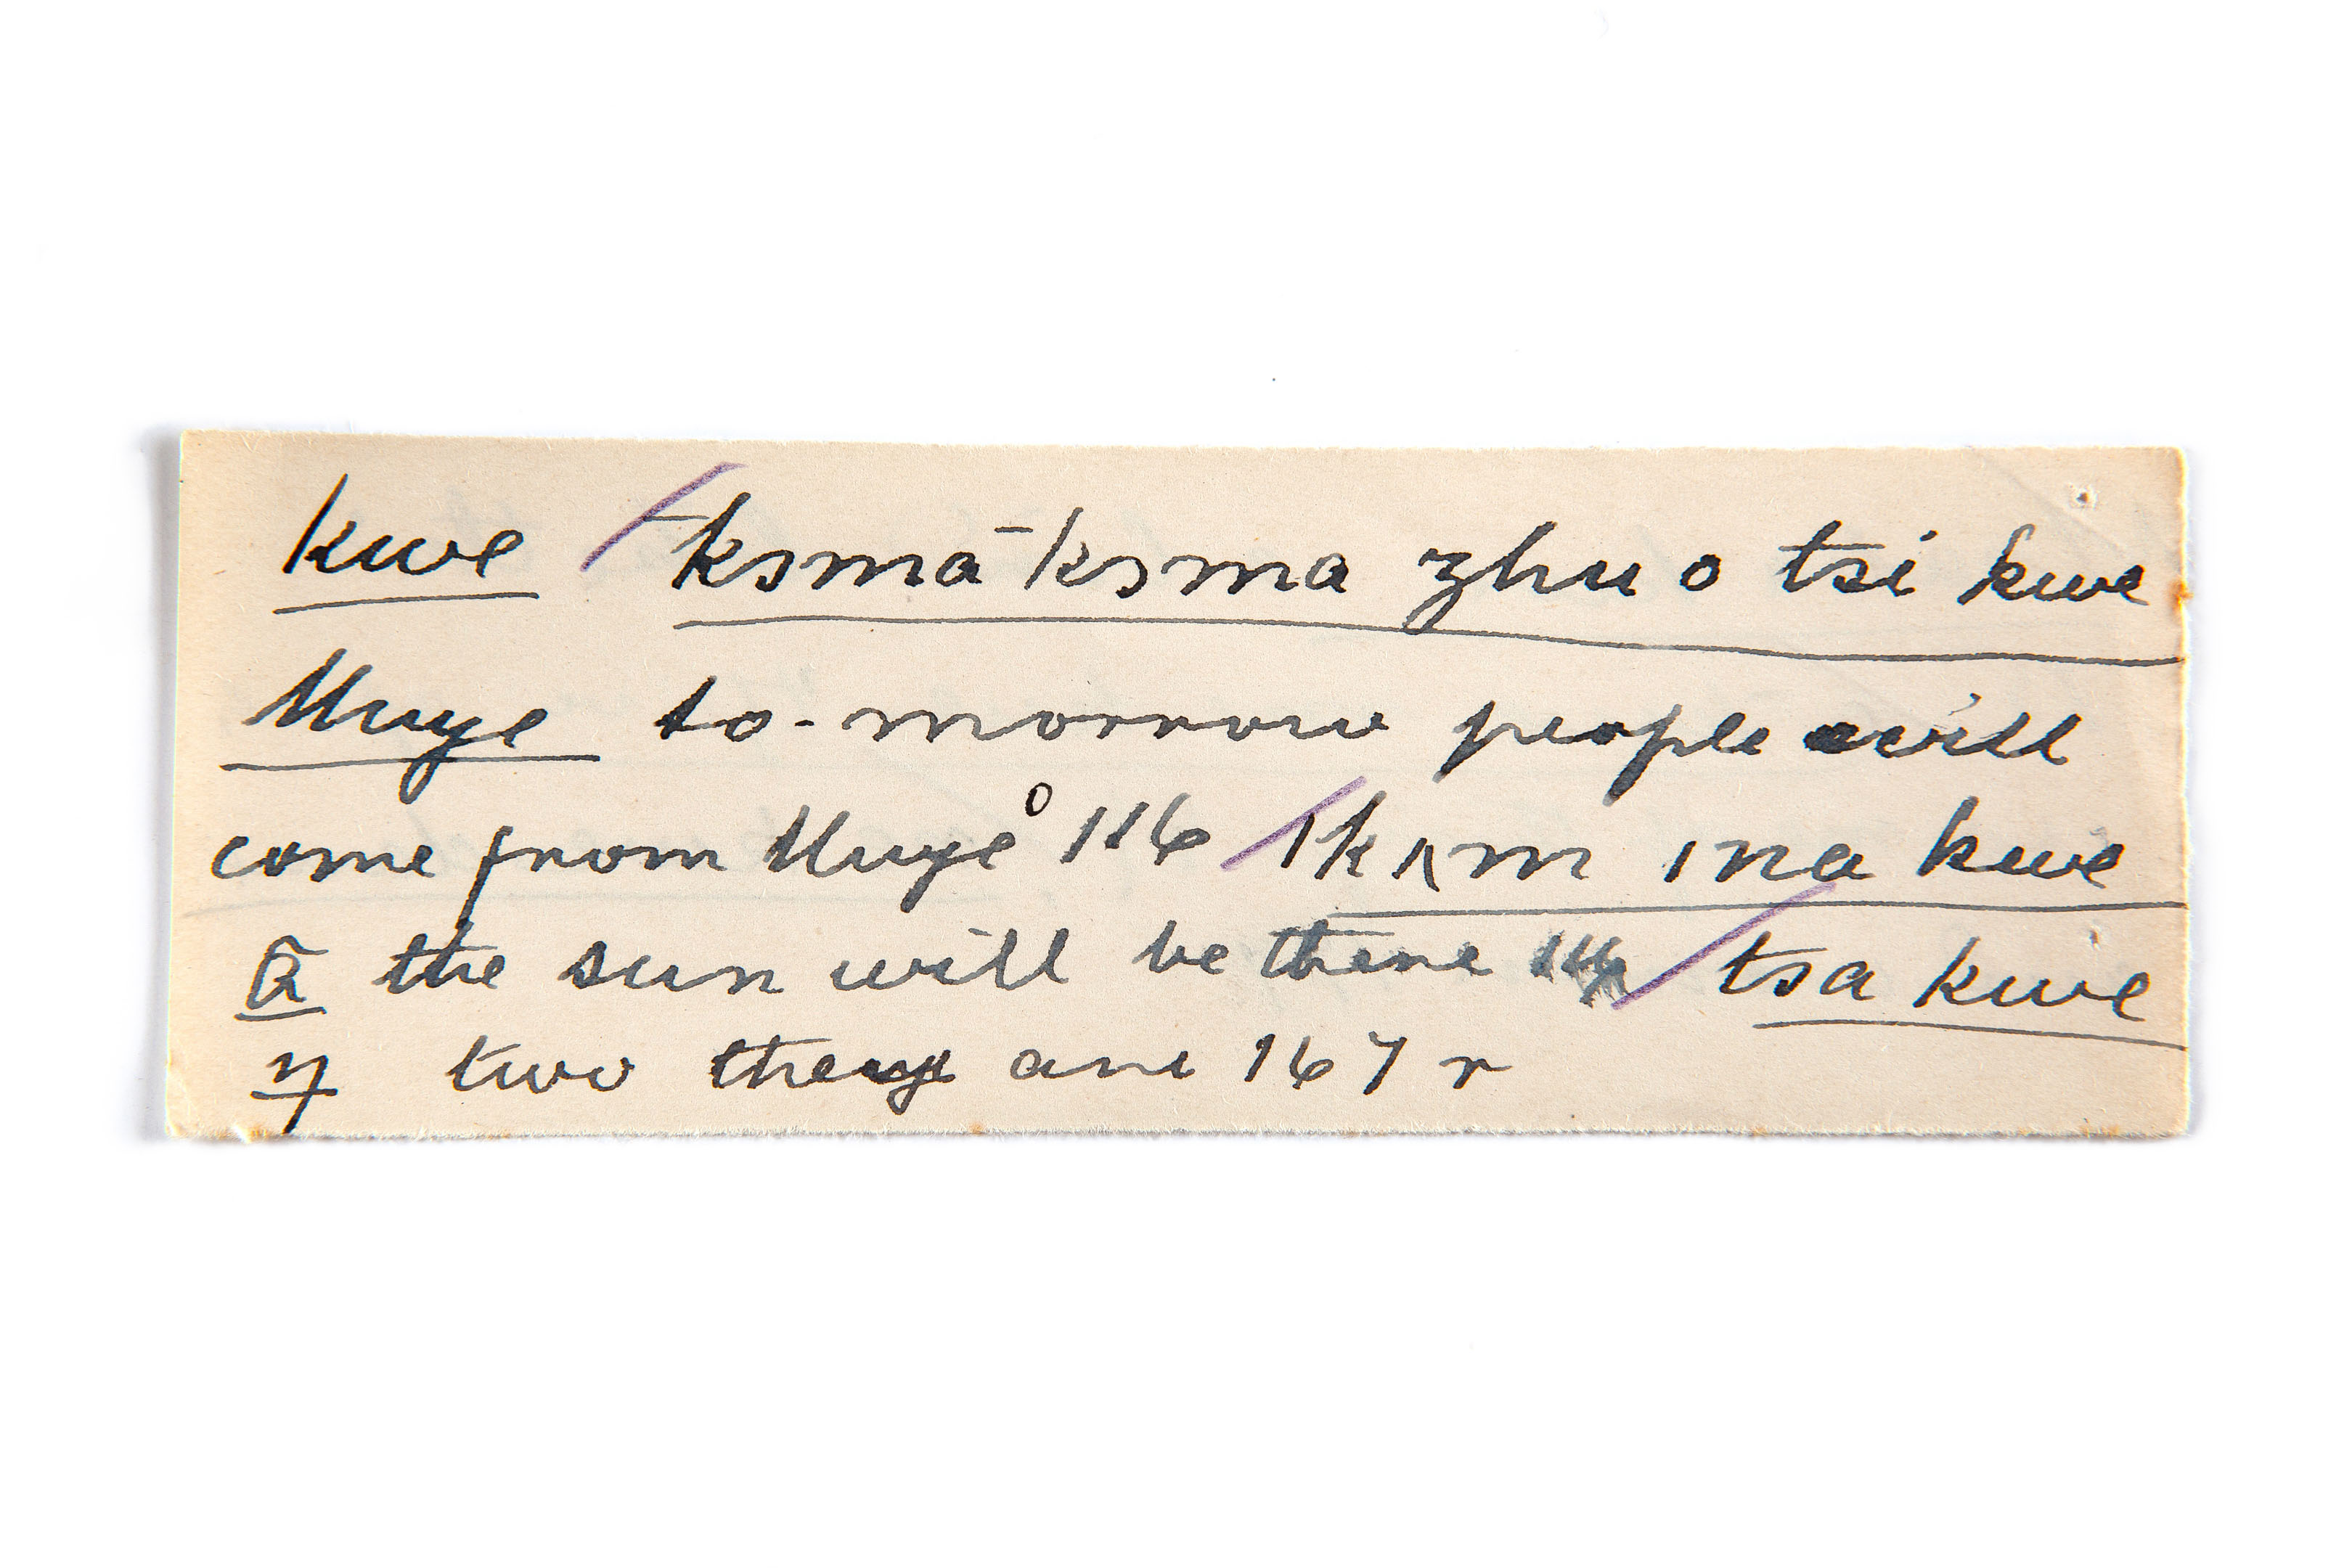 kwe /ksmā ksma zhu o tsi kwe
Nuye to-morrow people will
come from Nuye° 116 /1kʌm ına kwe
ã the sun will be there / tsa kwe
ŋ two they are 167 r